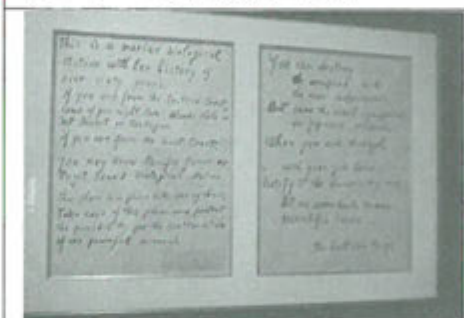 This is a marine biological
station with her history of
over sixty years.
If you are from the Eastern Coast,
some of you might know Woods Hole or
Mt Desert or Tortugas.
If you are from the West Coast,
you may know Pacific Grove or
Puget Sound Biological Station.
This place is a place like one of these.
Take care of this place and protect
the possibility for the continuation
of our peaceful research.
You can destroy
the weapons and
the war instruments
But save the civil equipments
for Japanese students
When you are through
with your job here
Notify to the University and
let us come back to our
scientific home
The last one to go